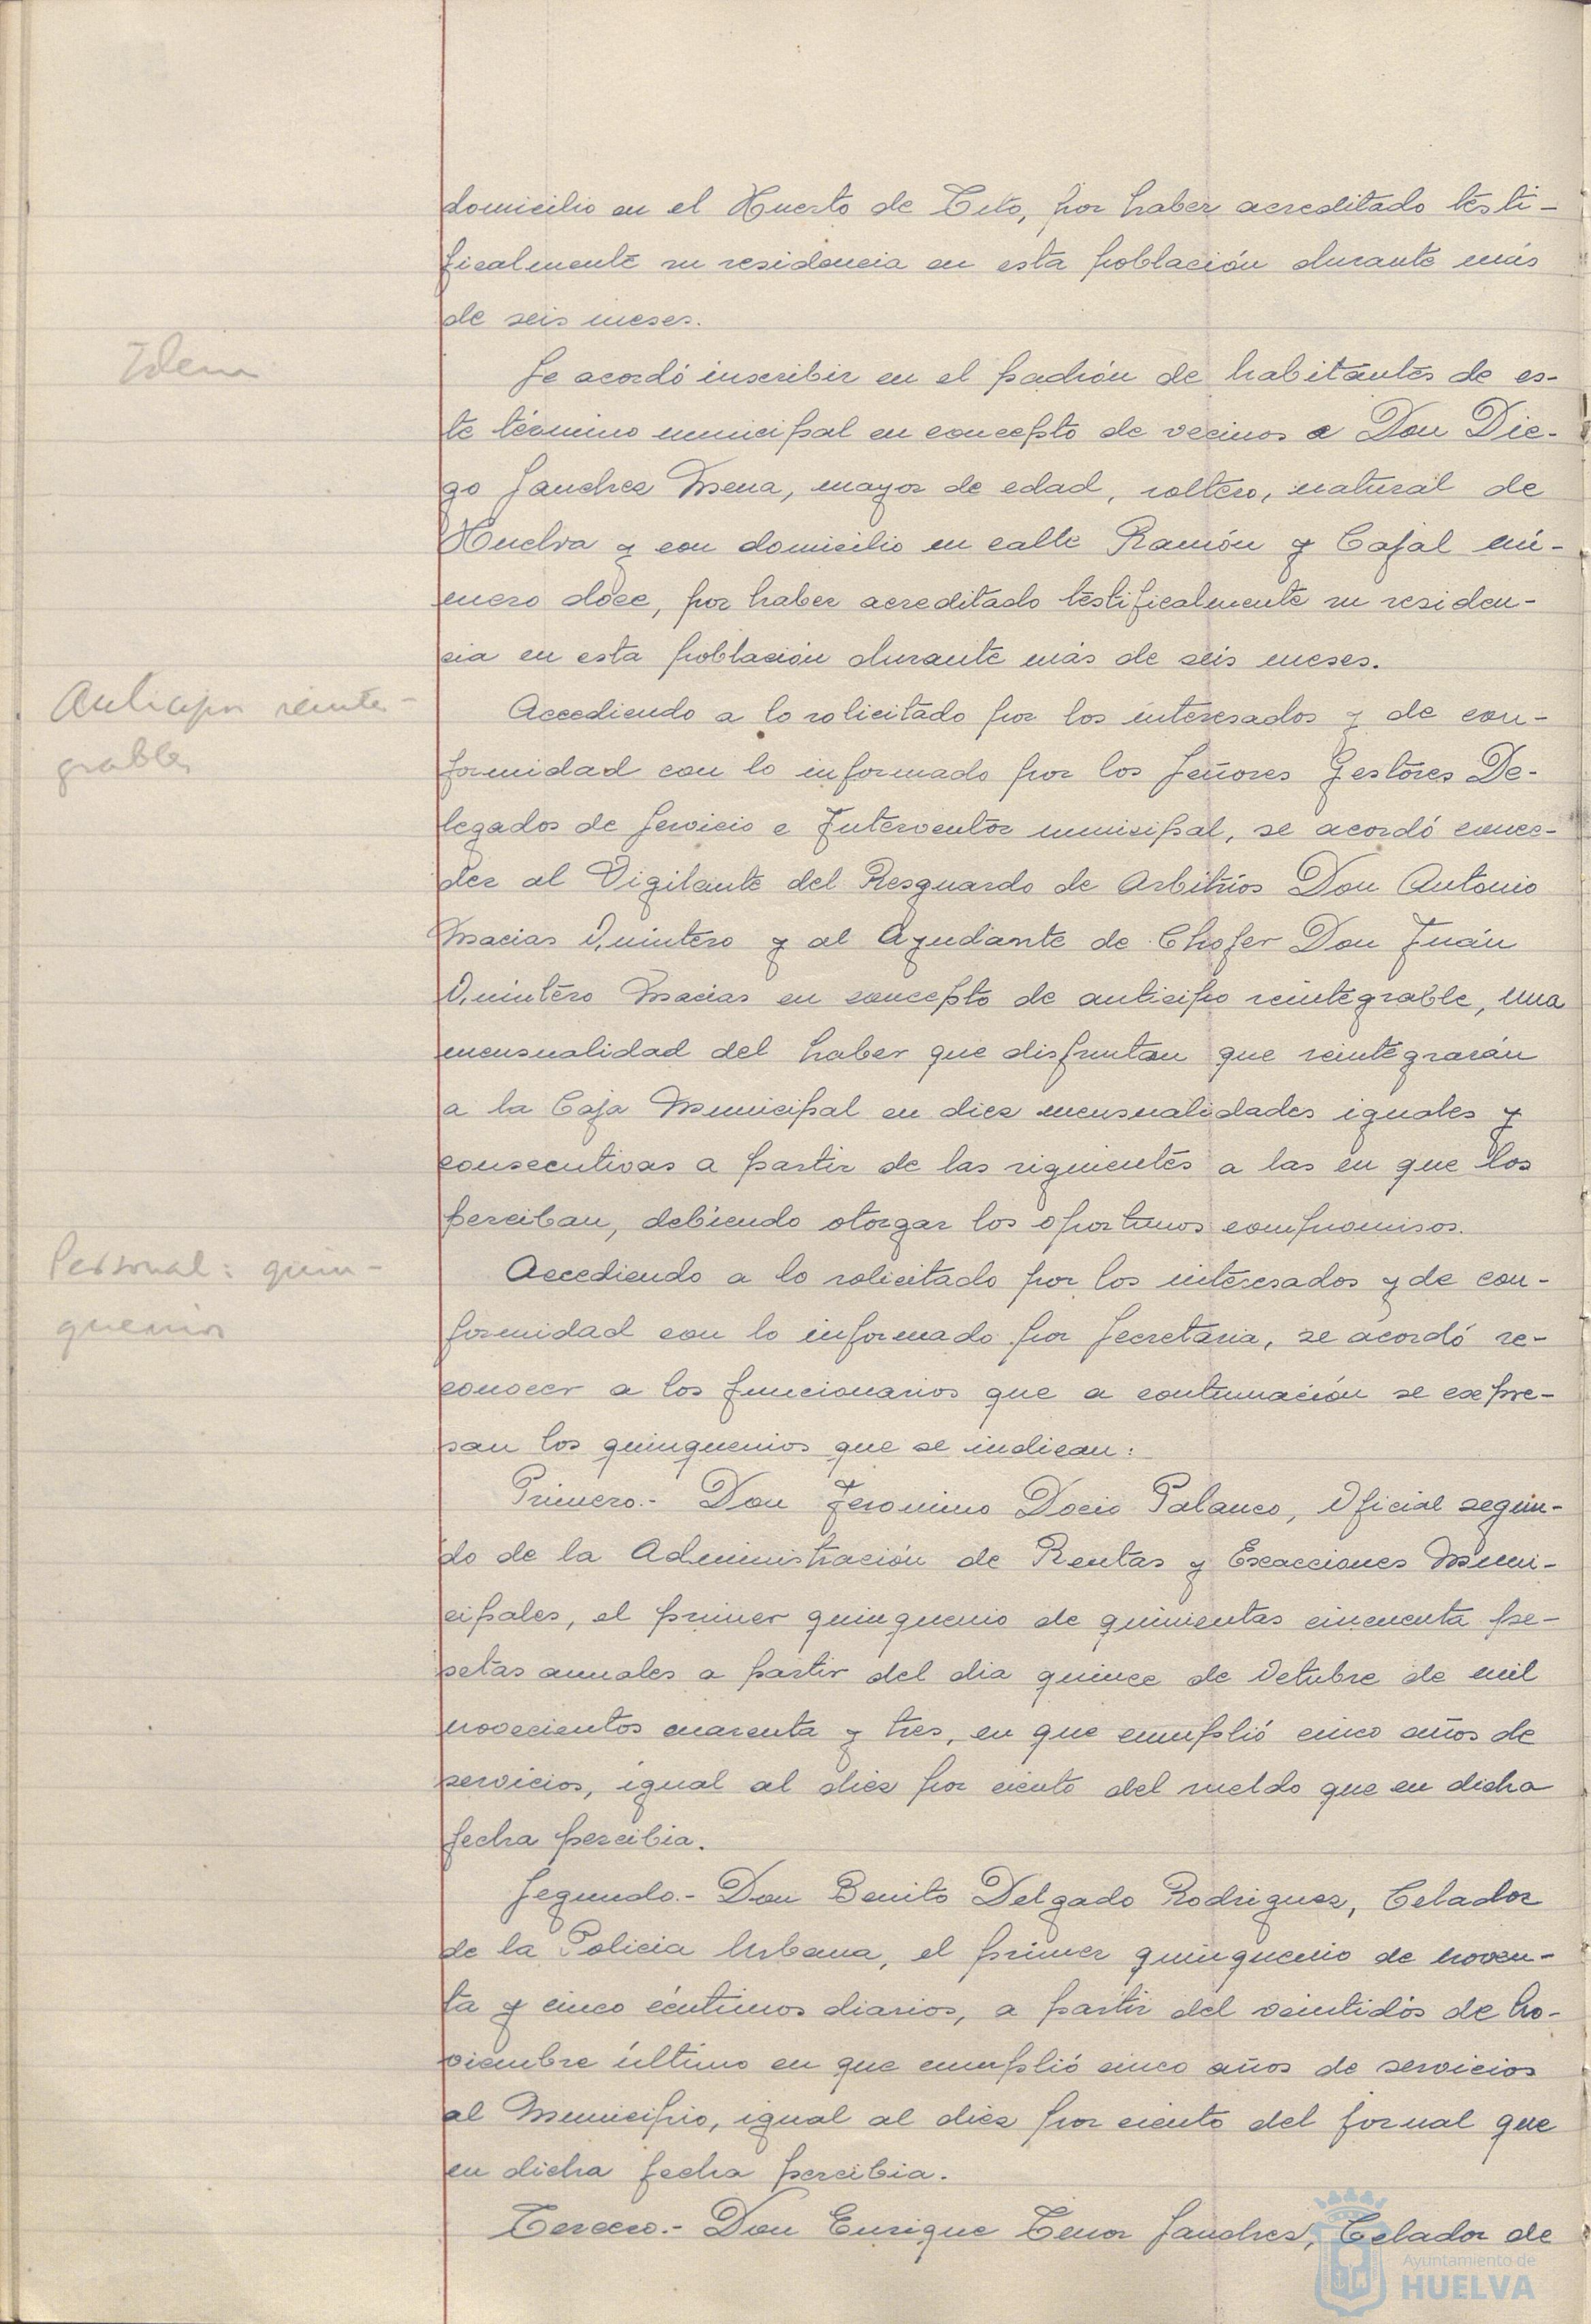 domicilio en el Huerto de Tito, por haber acreditado testi-
ficalmente su residencia en esta población durante más
de seis meses.
Idem
Se acordó inscribir en el padrón de habitantes de es-
te término municipal en concepto de vecinos a Don Die-
go Sanchez Mena, mayor de edad, soltero, natural de
Huelva y con domicilio en calle Ramón y Cajal nú-
mero doce, por haber acreditado testificalmente su residen-
cia en esta población durante más de seis meses.
Anticipos reinte-
grables
Accediendo a lo solicitado por los interesados y de con-
formidad con lo informado por los Señores Gestores De-
legados de Servicio e Interventor municipal, se acordó conce-
der al Vigilante del Resguardo de Arbitrios Don Antonio
Macias Quintero y al Ayudante de Chofer Don Juán
Quintero Macias en concepto de anticipo reintegrable, una
mensualidad del haber que disfrutan que reintegrarán
a la Caja Municipal en diez mensualidades iguales y
consecutivas a partir de las siguientes a las en que los
perciban, debiendo otorgar los oportunos compromisos.
Personal: quin-
quenios
Accediendo a lo solicitado por los interesados y de con-
formidad con lo informado por Secretaria, se acordó re-
conocer a los funcionarios que a continuación se expre-
san los quinquenios que se indican:
Primero.- Don Jeronimo Docio Palanco, Oficial segun-
do de la Administración de Rentas y Exacciones Muni-
cipales, el primer quinquenio de quinientas cincuenta pe-
setas anuales a partir del dia quince de Octubre de mil
novecientos cuarenta y tres, en que cumplió cinco años de
servicios, igual al diez por ciento del sueldo que en dicha
fecha percibia.
Segundo.- Don Benito Delgado Rodriguez, Celador
de la Policia Urbana, el primer quinquenio de noven-
ta y cinco céntimos diarios, a partir del veintidós de No-
viembre último en que cumplió cinco años de servicios
al Municipio, igual al diez por ciento del jornal que
en dicha fecha percibia.
Tercero.- Don Enrique Tenor Sanchez, Celador de
Ayuntamiento de
HUELVA